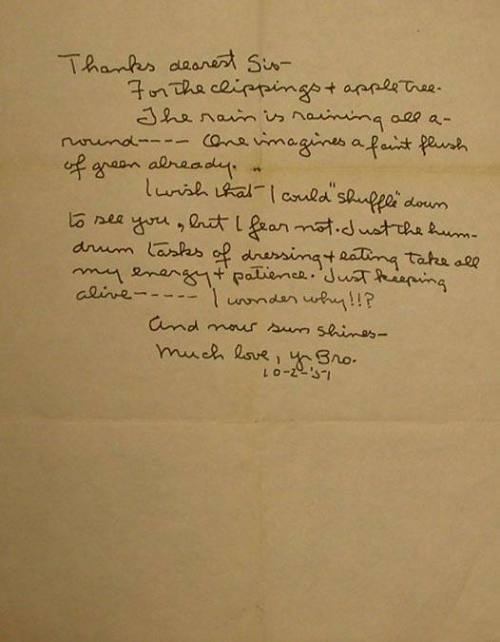 Thanks dearest Sis-
For the clippings + apple tree.
The rain is raining all a-
round---- One imagines a faint flush
of green already.
I wish that I could "shuffle" down
to see you, but I fear not. Just the hum-
drum tasks of dressing + eating take all
my energy + patience. Just keeping
alive----- I wonder why!!?
And now sun shines-
Much love, yr Bro.
10-2-'51